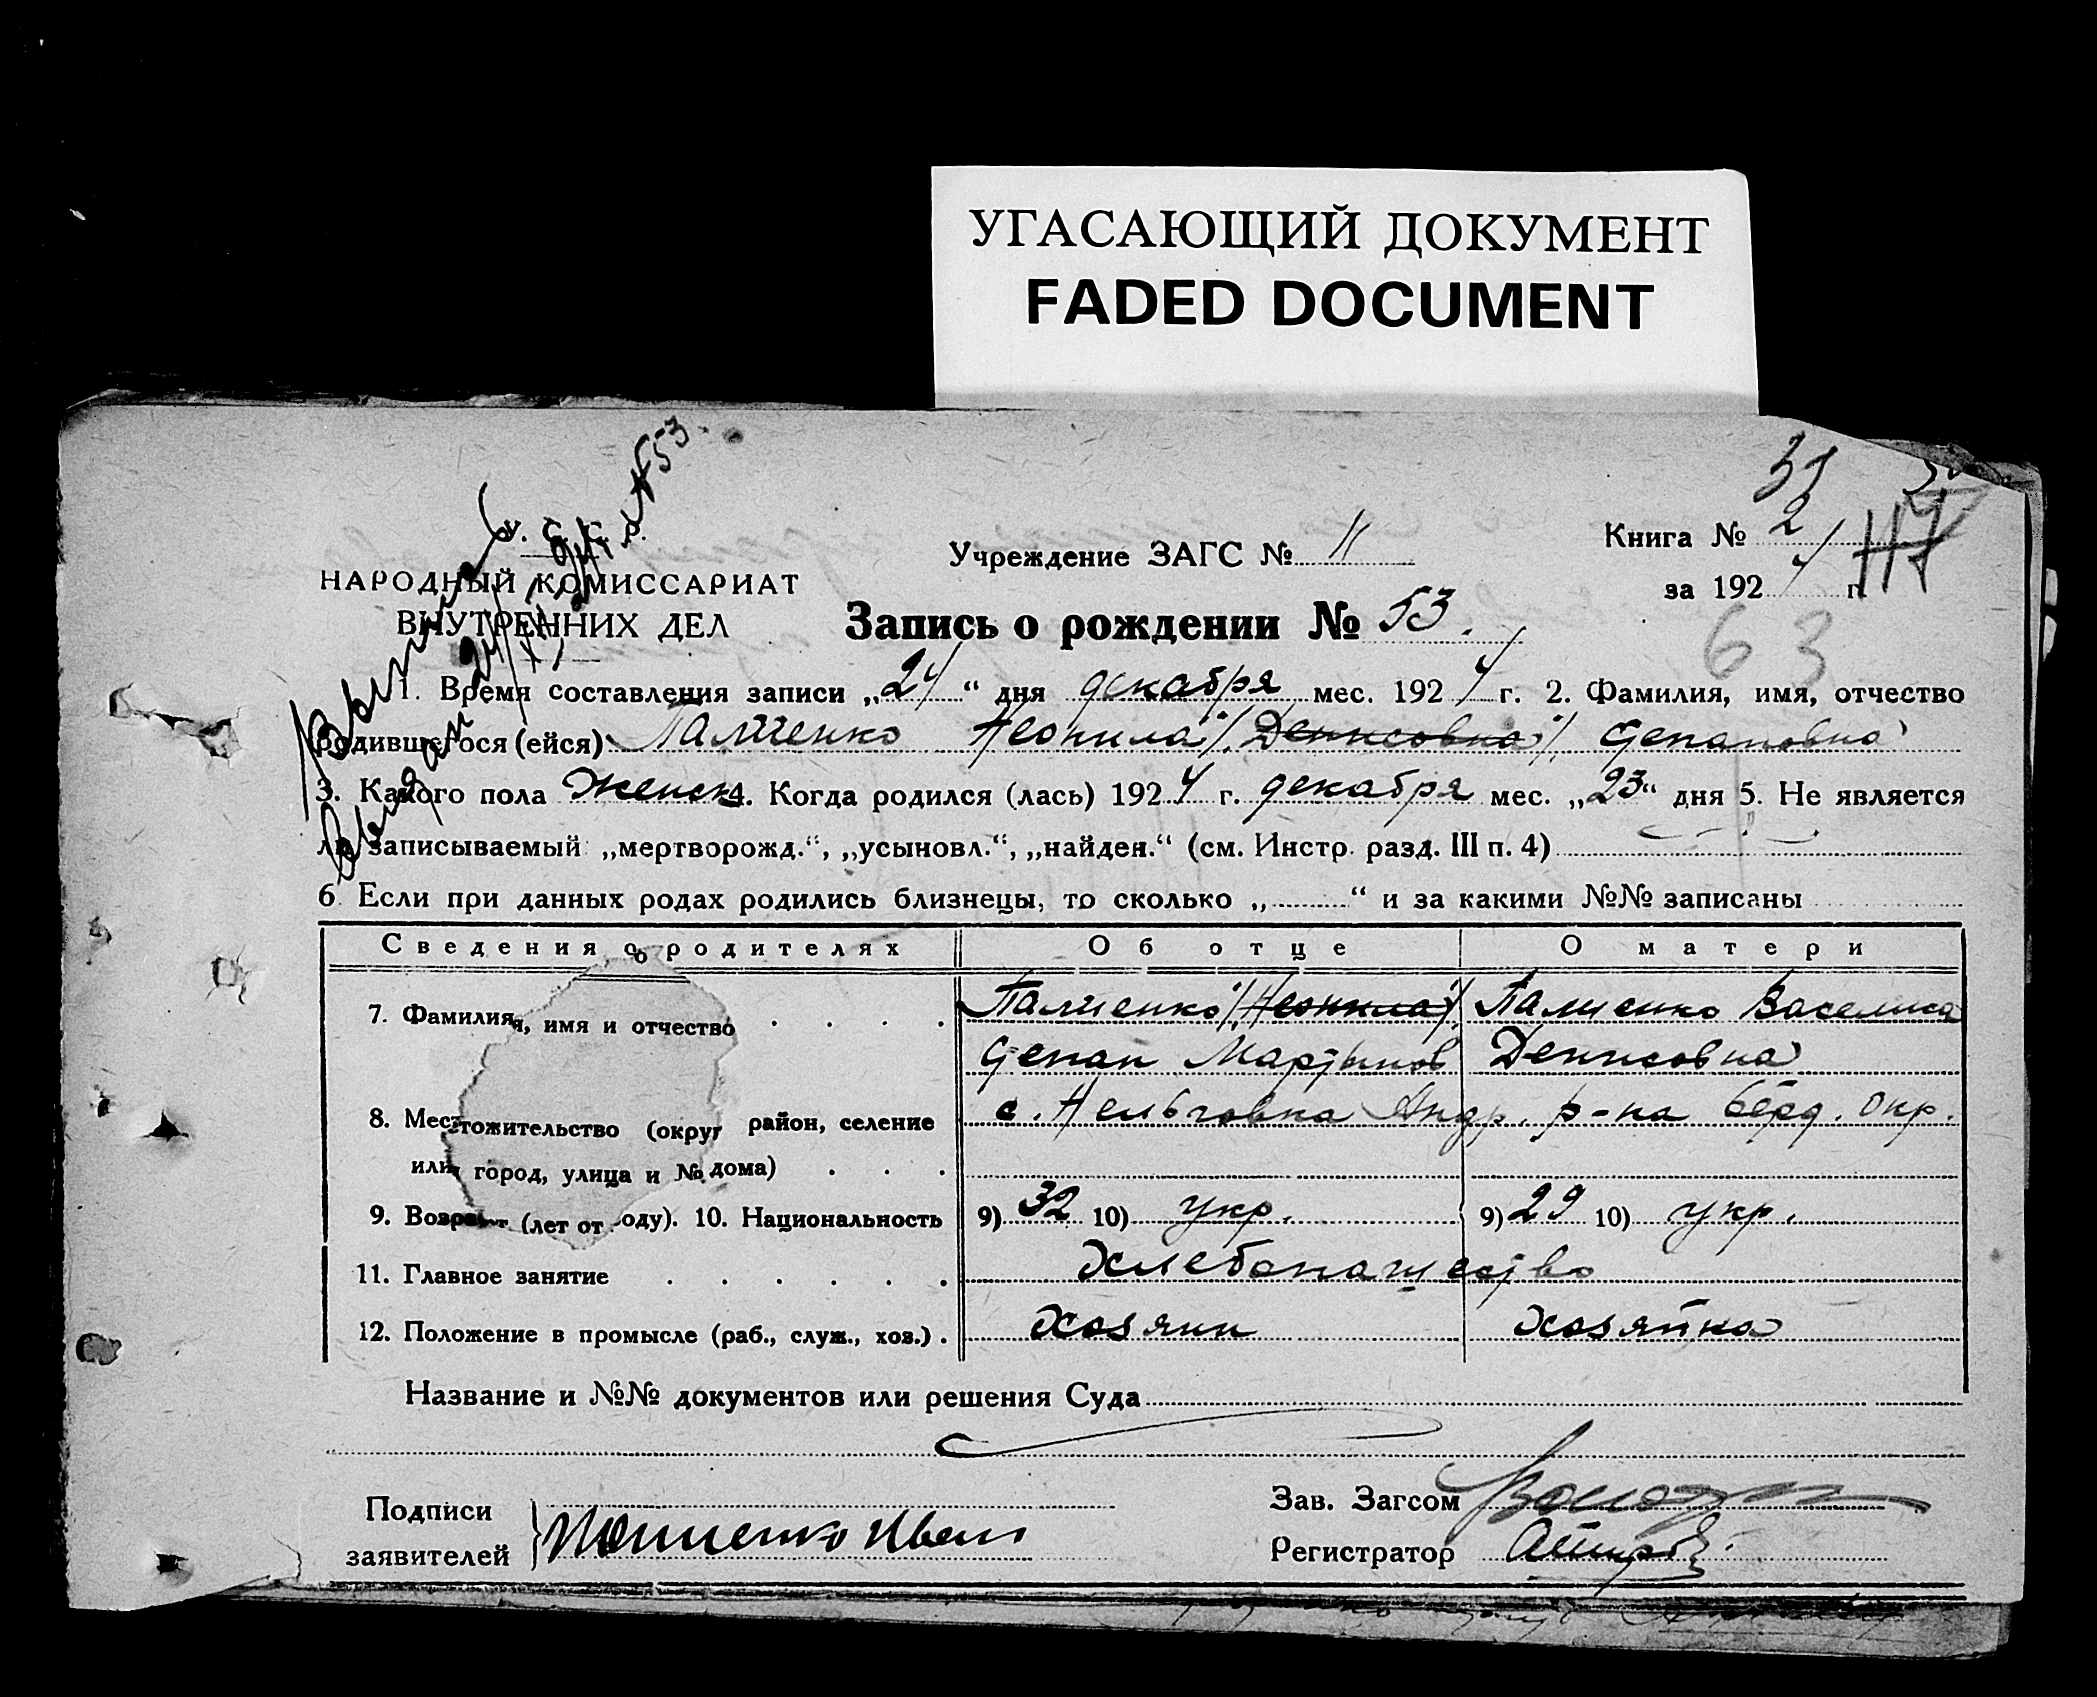 УГАСАЮЩИЙ ДОКУМЕНТ
FADED DOCUMENT
31
У. С. С. Р.
НАРОДНЫЙ КОМИССАРИАТ
ВНУТРЕННИХ ДЕЛ
№ 53
Учреждение ЗАГС № 11
Книга № 2
за 1924 г.
117
Запись о рождении № 53.
63
1. Время составления записи „24“ дня декабря мес. 1924 г. 2. Фамилия, имя, отчество
родившегося (ейся) Неонила /Денисовна/ Степановна
3. Какого пола Женск 4. Когда родился (лась) 1924 г. декабря мес. „23“ дня 5. Не является
ли записываемый „мертворожд.“, „усыновл.“, „найден.“ (см. Инстр. разд. III п. 4)
6. Если при данных родах родились близнецы, то сколько „ “ и за какими №№ записаны
Сведения о родителях Об отце О матери
7. Фамилия, имя и отчество /Неонила/
Степан Мартынов Денисовна
8. Местожительство (округ район, селение с. Андр. р-на Берд. Окр.
или город, улица и № дома)
9. Возраст (лет от роду). 10. Национальность 9) 32 10) укр. 9) 29 10) укр.
11. Главное занятие Хлебопашество
12. Положение в промысле (раб., служ., хоз.) Хозяин Хозяйка
Название и №№ документов или решения Суда
Подписи
заявителей Иван
Зав. Загсом
Регистратор